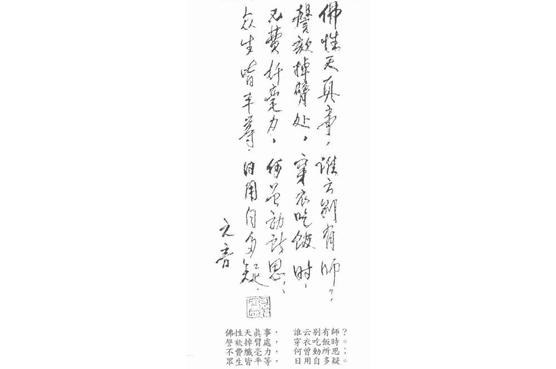 佛性天真事，誰云别有師？
謦欬掉臂处，穿衣吃飯時，
不費纤毫力，何曾動所思。
众生皆平等，日用自多疑。
元音
佛性天眞事，誰云別有師？
謦欬掉臂處，穿衣吃飯時。
不費纖毫力，何曾動所思。
眾生皆平等，日用自多疑。